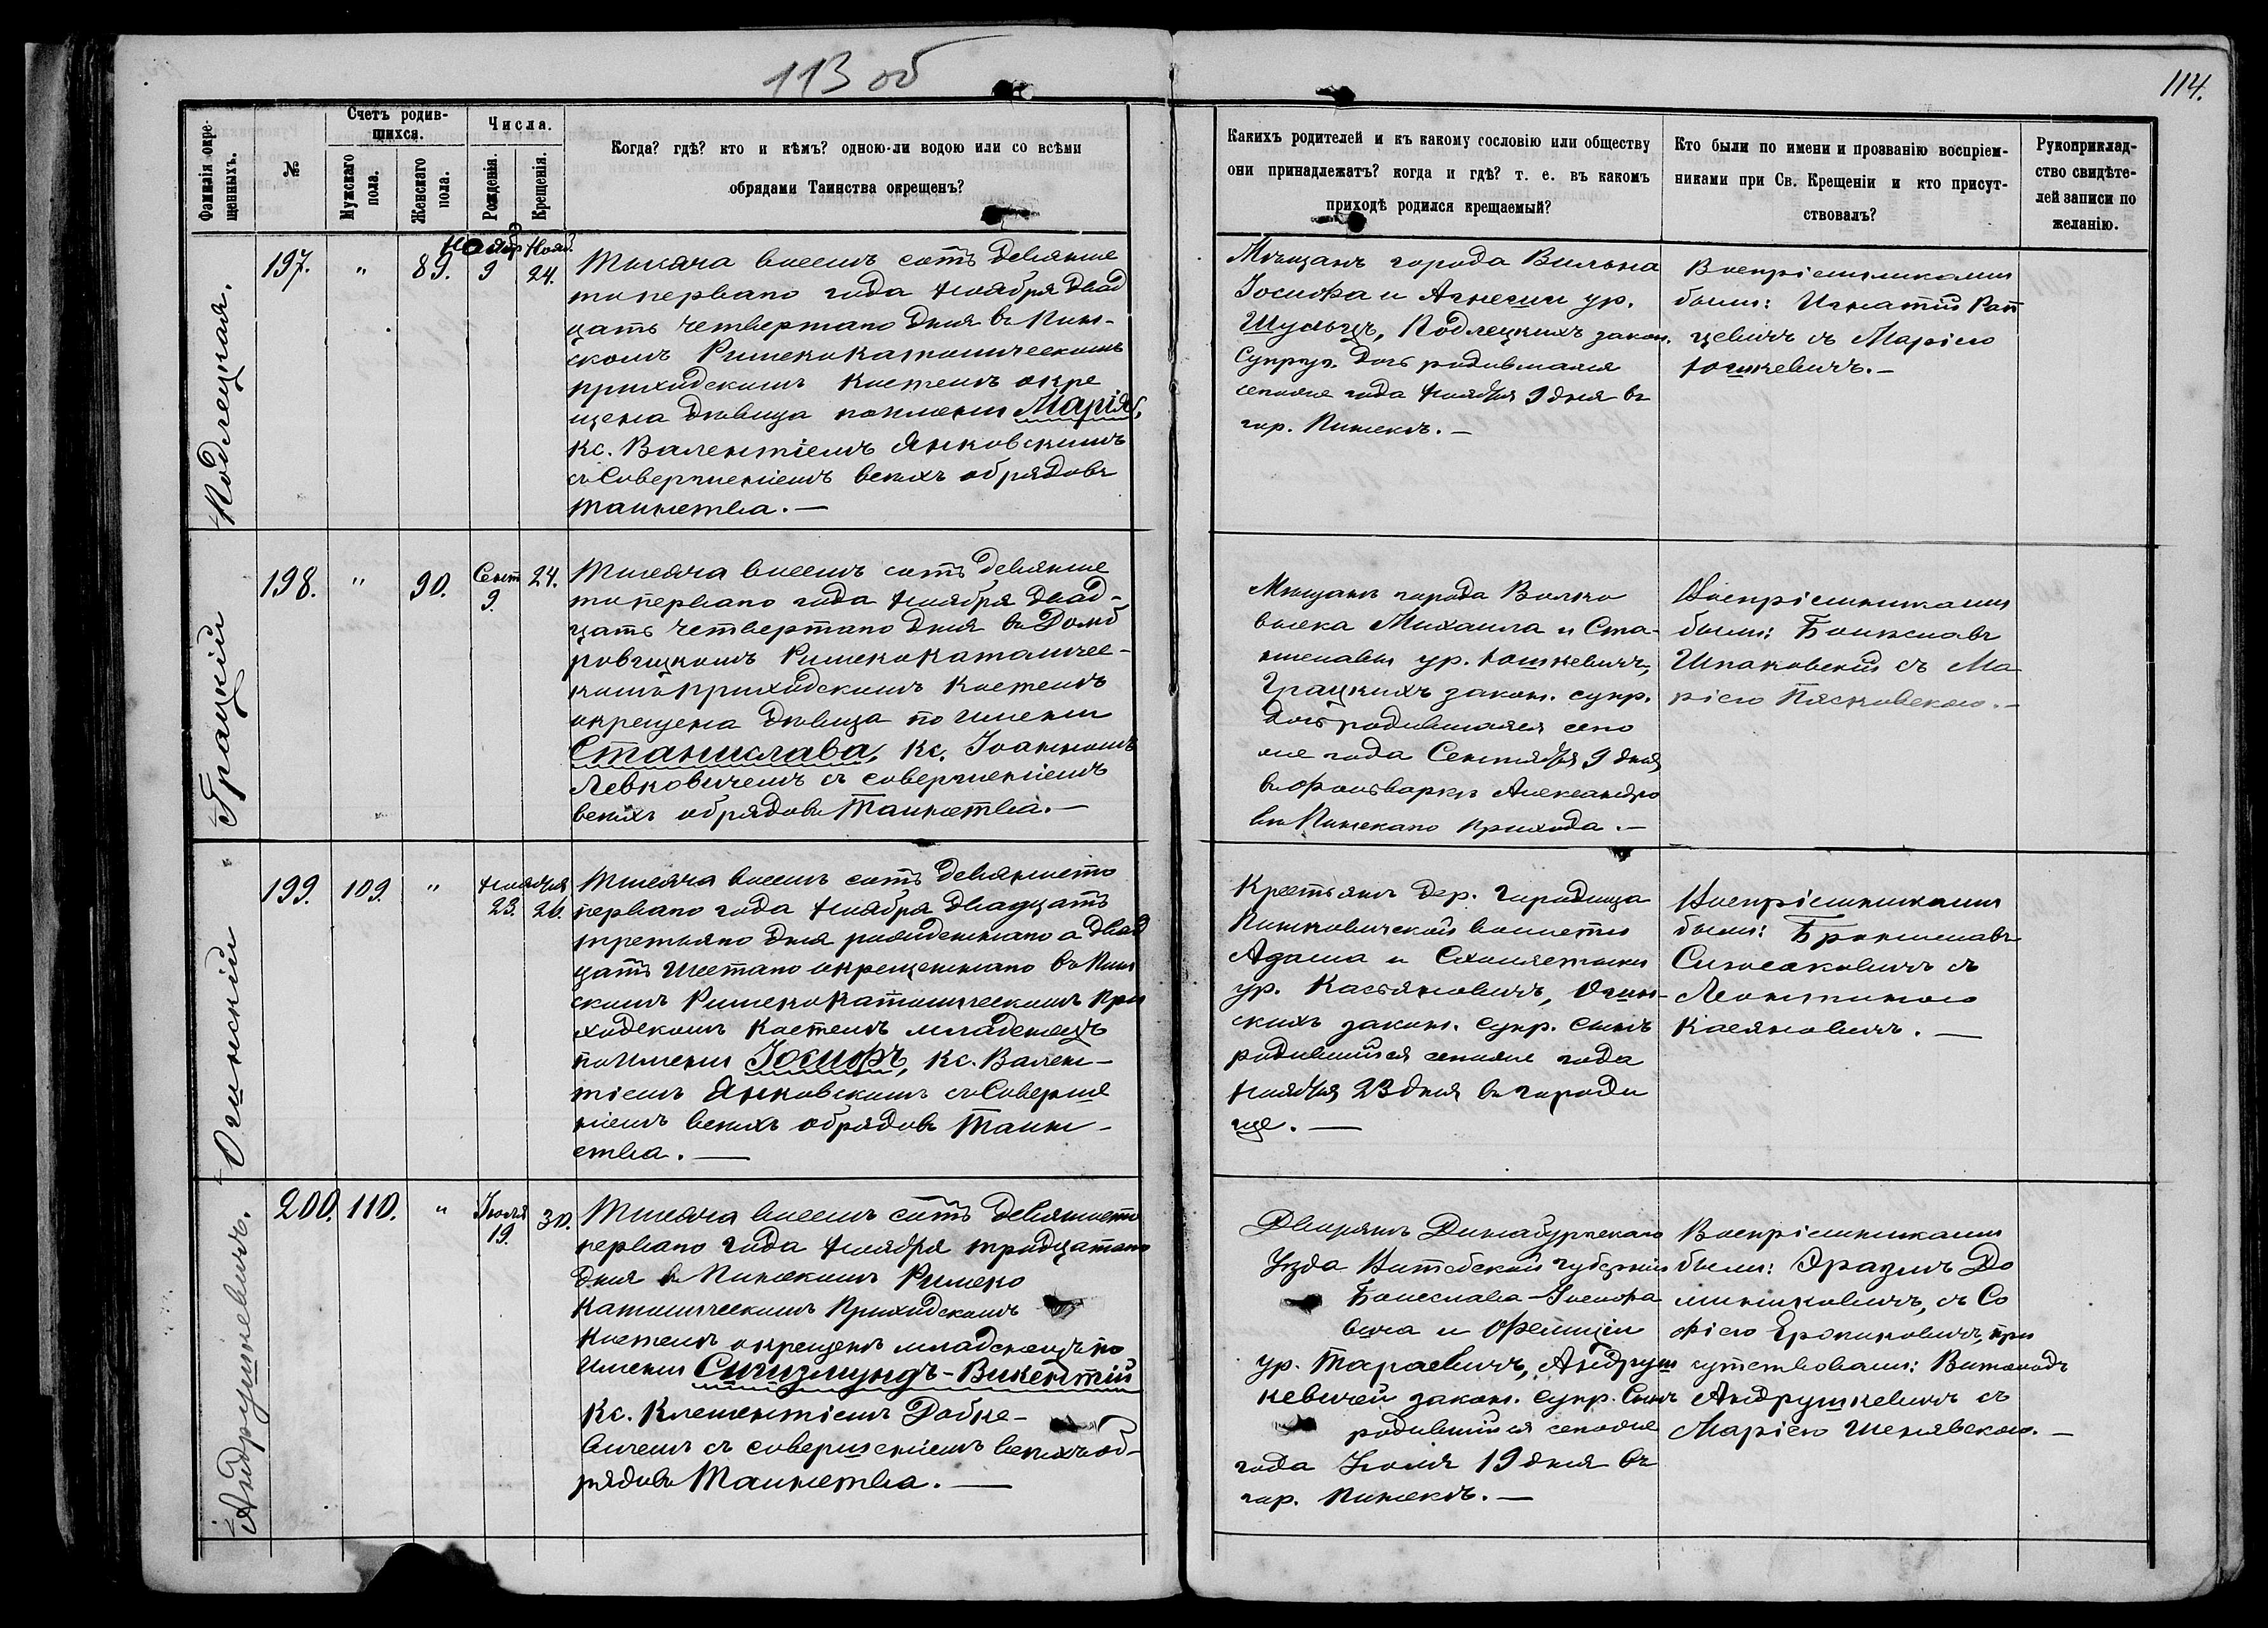 113 об
114.
Фамилія окре-
щенныхъ.
№
Счетъ родив-
шихся.
Мужскаго
пола.
Женскаго
пола.
Числа.
Рожденія.
Крещенія.
Когда? гдѣ? кто и кѣмъ? одною-ли водою или со всѣми
обрядами Таинства окрещенъ?
Какихъ родителей и къ какому сословію или обществу
они принадлежатъ? когда и гдѣ? т. е. въ какомъ
приходѣ родился крещаемый?
Кто были по имени и прозванію воспріем-
никами при Св. Крещеніи и кто присут-
ствовалъ?
Рукоприклад-
ство свидѣте-
лей записи по
желанію.
Подлецкая.
197.
"
89.
Нояб
9
Нояб.
24.
Тысяча восемь сотъ девяносто
то перваго года Ноября двад
цать четвертаго дня въ Пин-
скомъ Римско Католическомъ
приходскомъ Костелѣ окре
щена дѣвица по имени Марія,
Кс. Валентіемъ Янковскимъ
съ совершеніемъ всѣхъ обрядовъ
таинства. —
Мѣщанъ города Вильна
Іосифа и Агнесии ур.
Шульцъ, Подлецкихъ закон.
Супруг. дочь родившаяся
сего же года Ноября 9 дня въ
гор. Пинскѣ. —
Воспріемниками
были: Игнатій Рап
цевичъ съ Маріею
Юшкевичъ. —
Грацкій
198.
"
90.
Сент
9.
24.
Тысяча восемь сотъ девяносто
то перваго года Ноября двад-
цать четвертаго дня въ Домб
ровицкомъ Римско Католичес-
комъ приходскомъ Костелѣ
окрещена дѣвица по имени
Станислава, Кс. Іоанномъ
Левковичемъ съ совершеніемъ
всѣхъ обрядовъ Таинства. —
Мѣщанъ города Волко
выска Михаила и Ста-
ниславы ур. Юшкевичъ,
Грацкихъ закон. супр.
дочь родившаяся сего
же года Сентября 9 дня
въ фольваркѣ Александро
вѣ Пинскаго прихода. —
Воспріемниками
были: Болеславъ
Шпаковскій съ Ма
ріею Пясковскою. —
Огинскій
199.
109.
"
Ноября
23.
26.
Тысяча восемь сотъ девяносто
перваго года Ноября двадцать
третьяго дня рожденнаго а двад
цать шестаго окрещеннаго въ Пин
скомъ Римско Католическомъ при
ходскомъ Костелѣ младенецъ
по имени Іосифъ, Кс. Вален-
тіемъ Янковскимъ съ соверше
ніемъ всѣхъ обрядовъ Таин-
ства. —
Крестьянъ дер. Городища
Пинковичской волости
Адама и Схоластики
ур. Касьяновичъ, Огин-
скихъ закон. супр. сынъ
родившійся сего же года
Ноября 23 дня въ Городи
ще. —
Воспріемниками
были: Брониславъ
съ
Леонтиною
Касяновичъ. —
Андрушкевичъ.
200.
110.
"
Іюля
19.
30.
Тысяча восемь сотъ девяносто
перваго года Ноября тридцатаго
дня въ Пинскомъ Римско
Католическомъ Приходскомъ
Костелѣ окрещенъ младенецъ по
имени Сигизмундъ-Викентій
Кс. Клементіемъ Добке-
вичемъ съ совершеніемъ всѣхъ об-
рядовъ Таинства. —
Дворянъ Динабургскаго
Уѣзда Витебской губерніи
Болеслава-Іосифа
вича и Фелиціи
ур. Тараевичъ, Андруш
кевичей закон. супр. Сынъ
родившійся сего же
года Іюля 19 дня въ
гор. Пинскѣ. —
Воспріемниками
были: Эразмъ До
миниковичъ, съ Со
фіею при
сутствовали: Витольдъ
Андрушкевичъ съ
Маріею Шенявскою. —